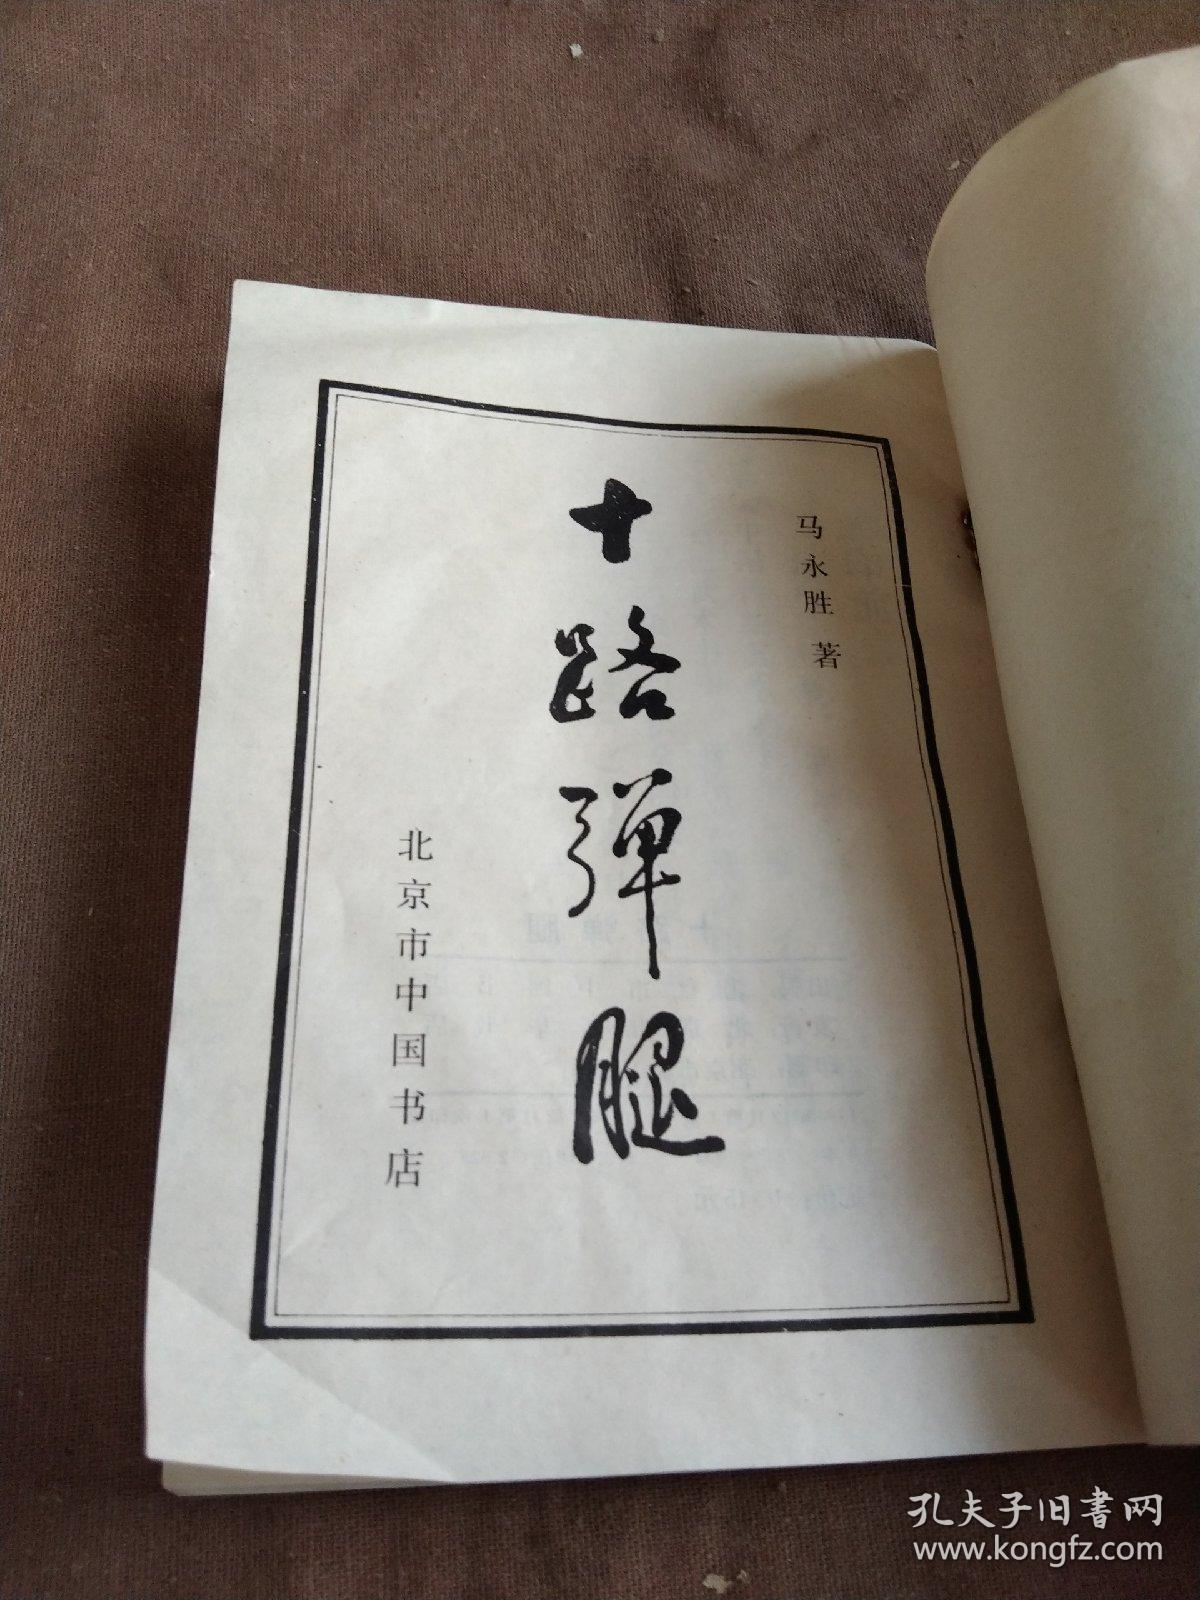 马永胜 著
十路弹腿
北京市中国书店
孔夫子旧書网
www.kongfz.com